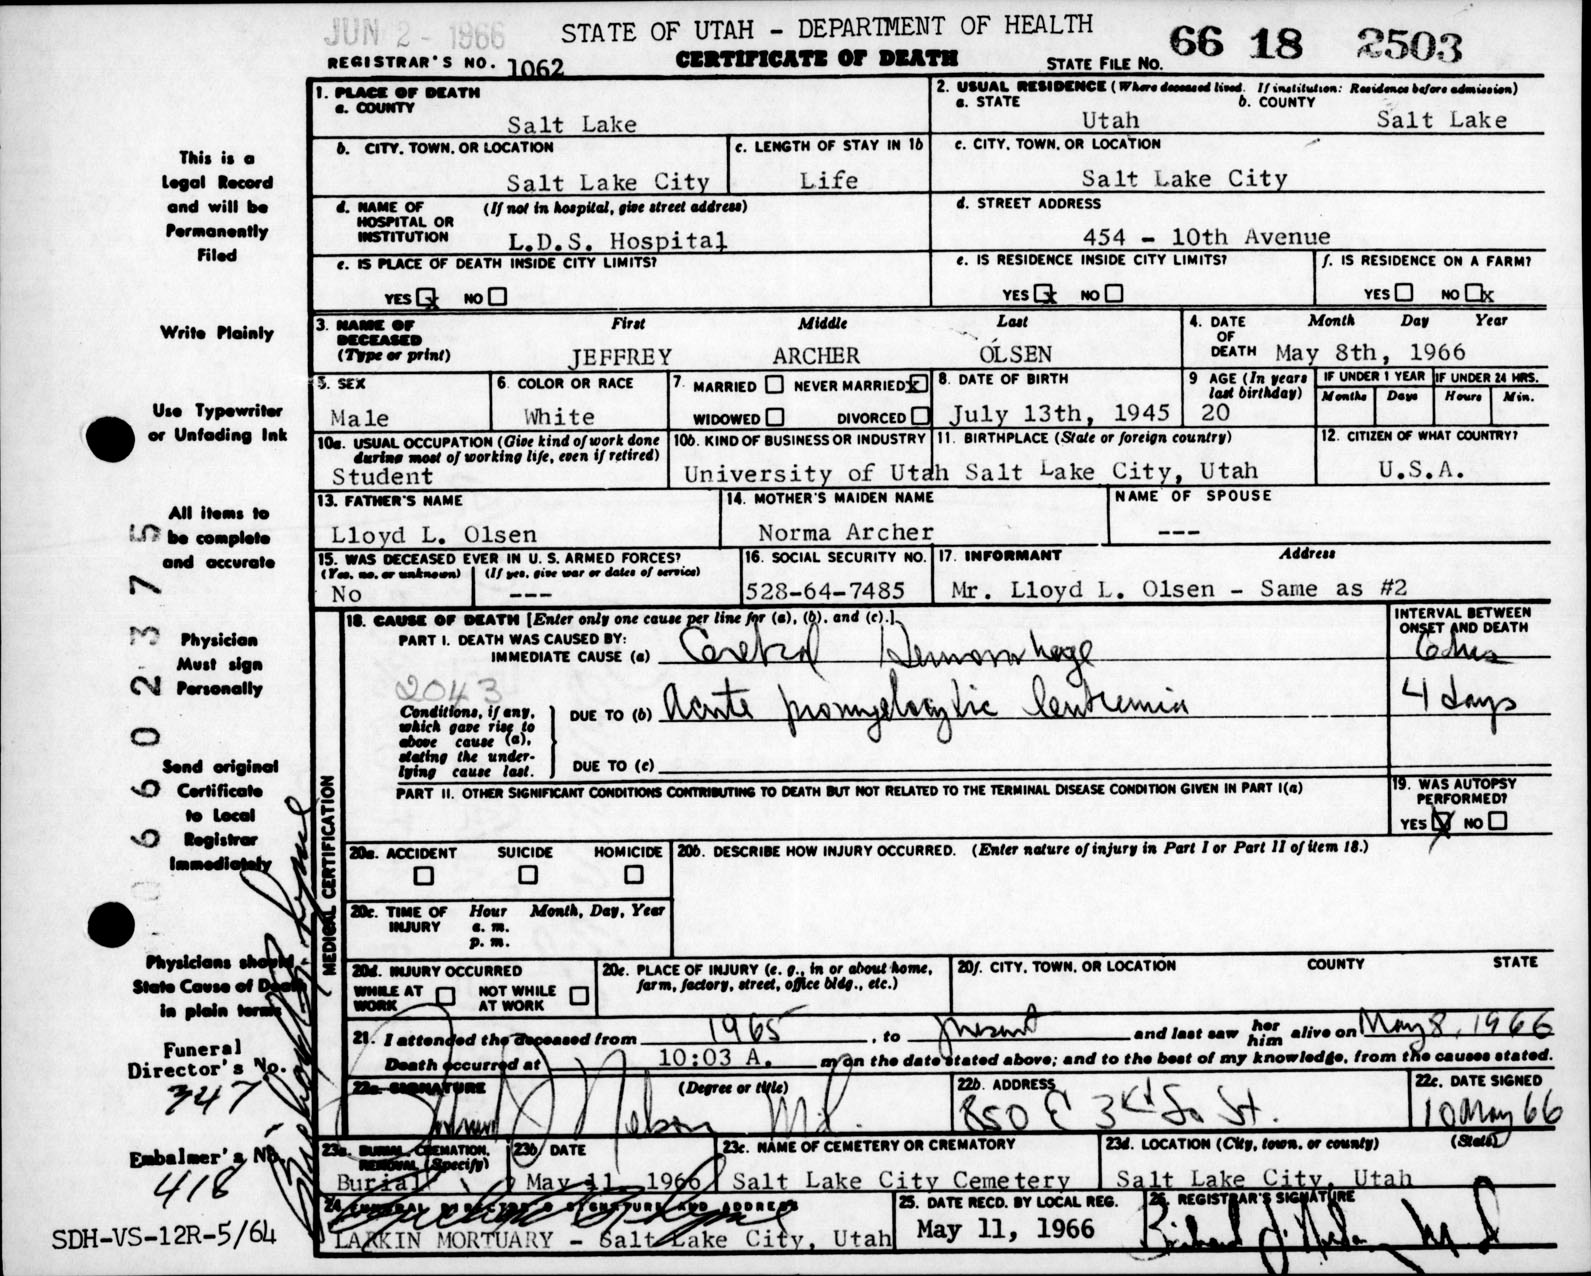 JUN 2 - 1966
STATE OF UTAH - DEPARTMENT OF HEALTH
66 18 2503
REGISTRAR'S NO. 1062
CERTIFICATE OF DEATH
STATE FILE NO.
1. PLACE OF DEATH
a. COUNTY
Salt Lake
2. USUAL RESIDENCE (Where deceased lived. If institution: Residence before admission)
a. STATE b. COUNTY
Utah Salt Lake
b. CITY, TOWN, OR LOCATION
Salt Lake City
c. LENGTH OF STAY IN 1b
Life
c. CITY, TOWN, OR LOCATION
Salt Lake City
d. NAME OF HOSPITAL OR INSTITUTION (If not in hospital, give street address)
L.D.S. Hospital
d. STREET ADDRESS
454 - 10th Avenue
e. IS PLACE OF DEATH INSIDE CITY LIMITS?
YES x NO
e. IS RESIDENCE INSIDE CITY LIMITS?
YES x NO
f. IS RESIDENCE ON A FARM?
YES NO x
3. NAME OF DECEASED (Type or print)
First Middle Last
JEFFREY ARCHER OLSEN
4. DATE OF DEATH
Month Day Year
May 8th, 1966
5. SEX
Male
6. COLOR OR RACE
White
7. MARRIED NEVER MARRIED x
WIDOWED DIVORCED
8. DATE OF BIRTH
July 13th, 1945
9 AGE (In years last birthday)
20
IF UNDER 1 YEAR
Months Days
IF UNDER 24 HRS.
Hours Min.
10a. USUAL OCCUPATION (Give kind of work done during most of working life, even if retired)
Student
10b. KIND OF BUSINESS OR INDUSTRY
University of Utah
11. BIRTHPLACE (State or foreign country)
Salt Lake City, Utah
12. CITIZEN OF WHAT COUNTRY?
U.S.A.
13. FATHER'S NAME
Lloyd L. Olsen
14. MOTHER'S MAIDEN NAME
Norma Archer
NAME OF SPOUSE
---
15. WAS DECEASED EVER IN U. S. ARMED FORCES?
(Yes, no, or unknown) (If yes, give war or dates of service)
No ---
16. SOCIAL SECURITY NO.
528-64-7485
17. INFORMANT Address
Mr. Lloyd L. Olsen - Same as #2
MEDICAL CERTIFICATION
18. CAUSE OF DEATH [Enter only one cause per line for (a), (b), and (c).]
INTERVAL BETWEEN ONSET AND DEATH
PART I. DEATH WAS CAUSED BY:
IMMEDIATE CAUSE (a) Cerebral Hemorrhage 6 hrs
2043
Conditions, if any, which gave rise to above cause (a), stating the underlying cause last.
DUE TO (b) Acute promyelocytic leukemia 4 days
DUE TO (c)
PART II. OTHER SIGNIFICANT CONDITIONS CONTRIBUTING TO DEATH BUT NOT RELATED TO THE TERMINAL DISEASE CONDITION GIVEN IN PART I(a)
19. WAS AUTOPSY PERFORMED?
YES X NO
20a. ACCIDENT SUICIDE HOMICIDE
20b. DESCRIBE HOW INJURY OCCURRED. (Enter nature of injury in Part I or Part II of item 18.)
20c. TIME OF INJURY
Hour Month, Day, Year
a. m.
p. m.
20d. INJURY OCCURRED
WHILE AT WORK NOT WHILE AT WORK
20e. PLACE OF INJURY (e. g., in or about home, farm, factory, street, office bldg., etc.)
20f. CITY, TOWN, OR LOCATION COUNTY STATE
21. I attended the deceased from 1965, to present and last saw her him alive on May 8, 1966
Death occurred at 10:03 A. m on the date stated above; and to the best of my knowledge, from the causes stated.
22a. SIGNATURE (Degree or title)
Nelson M.D.
22b. ADDRESS
850 E 3rd So St.
22c. DATE SIGNED
10 May 66
23a. BURIAL, CREMATION, REMOVAL (Specify)
Burial
23b. DATE
May 11, 1966
23c. NAME OF CEMETERY OR CREMATORY
Salt Lake City Cemetery
23d. LOCATION (City, town, or county) (State)
Salt Lake City, Utah
24. FUNERAL DIRECTOR'S SIGNATURE AND ADDRESS
LARKIN MORTUARY - Salt Lake City, Utah
25. DATE RECD. BY LOCAL REG.
May 11, 1966
26. REGISTRAR'S SIGNATURE
This is a
Legal Record
and will be
Permanently
Filed
Write Plainly
Use Typewriter
or Unfading Ink
All items to
be complete
and accurate
Physician
Must sign
Personally
Send original
Certificate
to Local
Registrar
Immediately
Physicians should
State Cause of Death
in plain terms
Funeral
Director's No.
347
Embalmer's No.
418
SDH-VS-12R-5/64
0660 2375